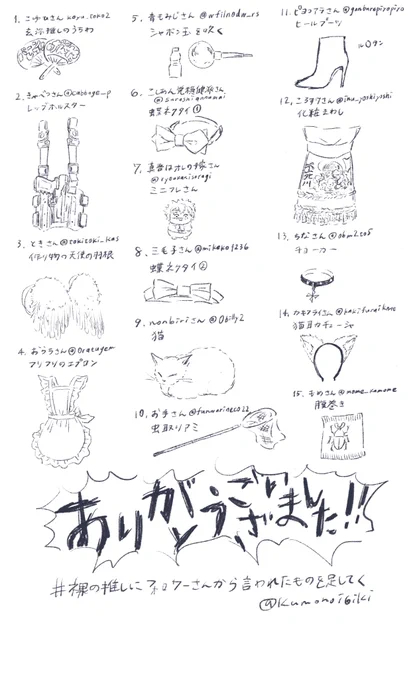 1. こけひさん
玄弥推しのうちわ
2. きゃべつさん@cabbage_p
レッグホルスター
3. ときさん@tokitoki_kas
作り物の天使の羽根
4. おララさん@oratuger
フリフリのエプロン
5. 青もみじさん
シャボン玉を吹く
6. こしあん党
蝶ネクタイ①
7. 真菰はオレの嫁さん
ミニフレさん
8. 三毛子さん@mikeko1236
蝶ネクタイ②
9. nonbiriさん
猫
10. お手さん@funwarineco22
虫取りアミ
11. ピヨコプラさん
ヒールブーツ
12. さん@ima_yoshiyoshi
化粧まわし
13. ちなさん
チョーカー
14. カキフライさん@kakifuraikare
猫耳カチューシャ
15. ものさん@mome_ramome
腹巻き
ありがとうございました!!
#裸の推しにフォロワーさんから言われたものを足してく
@Kumonoibiki